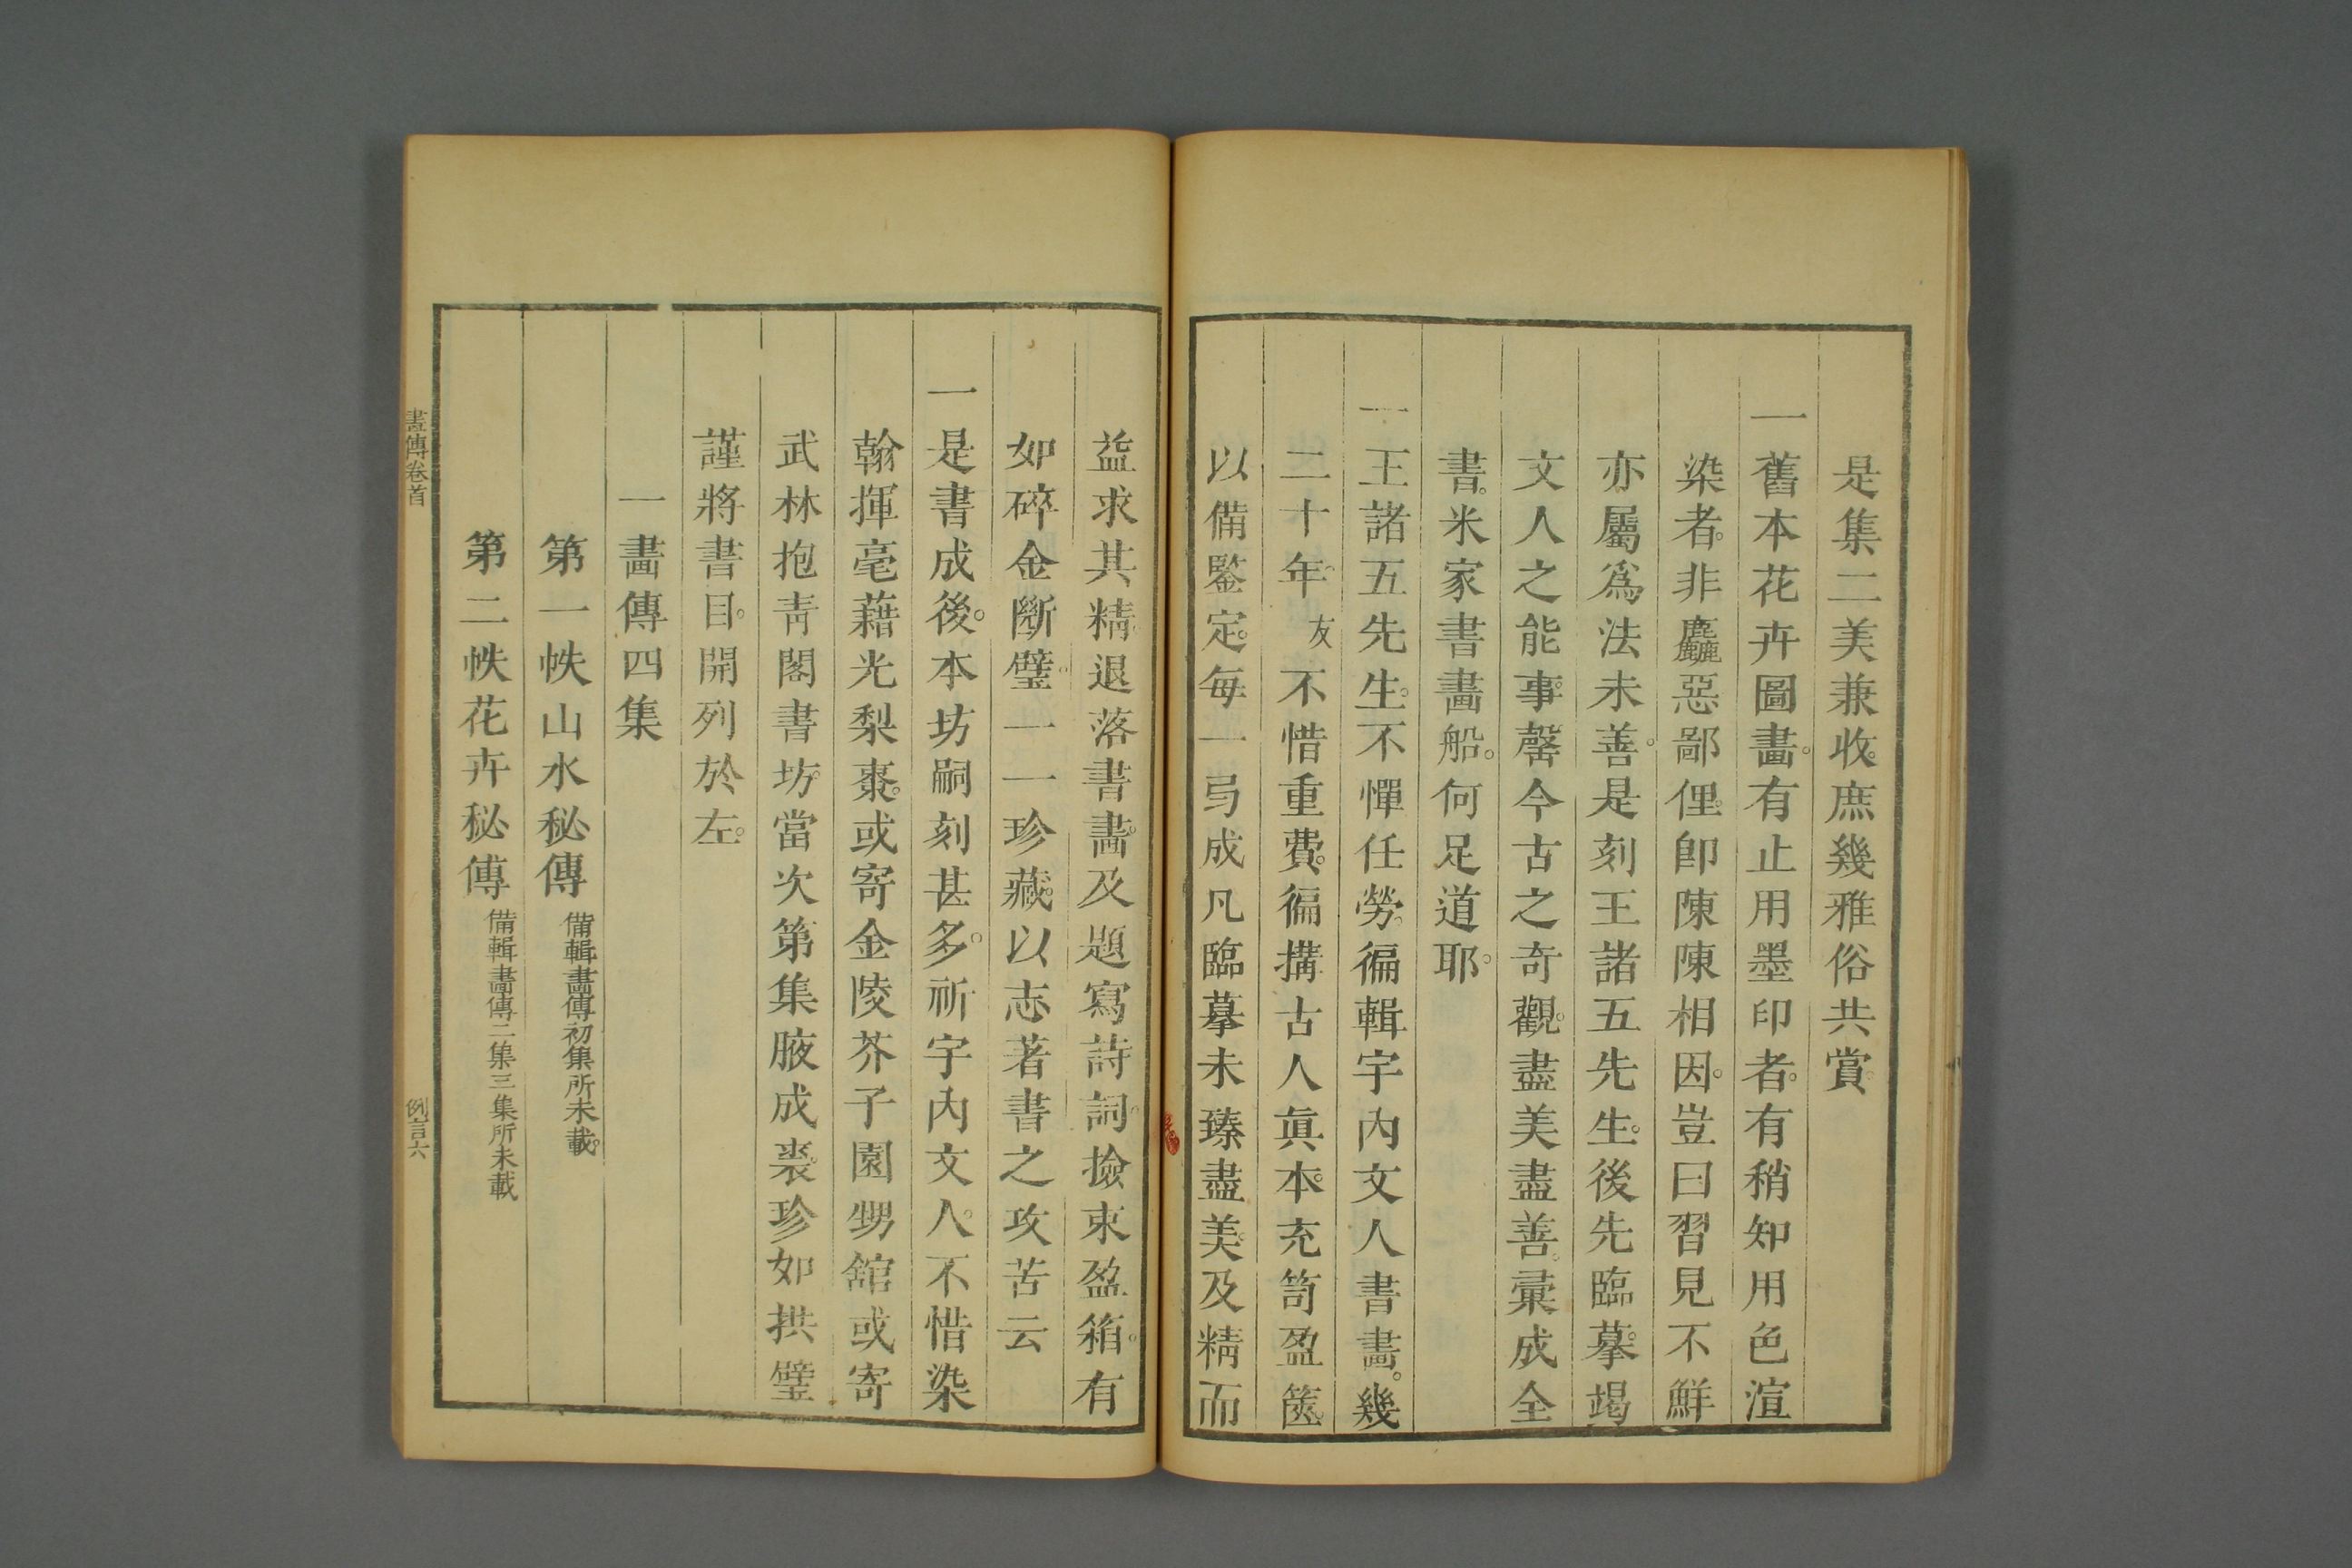 是集二美兼收。庶幾雅俗共賞。
一舊本花卉圖畫。有止用墨印者。有稍知用色渲
染者。非麤惡鄙俚。卽陳陳相因。豈曰習見不鮮
亦屬爲法未善。是刻王諸五先生。後先臨摹。竭
文人之能事。罄今古之奇觀。盡美盡善。彙成全
書。米家書畫船。何足道耶。
一王諸五先生。不憚任勞。徧輯宇內文人書畫。幾
二十年。友不惜重費。徧搆古人眞本。充笥盈篋。
以備鑒定。每一弓成凡臨摹未臻盡美。及精而
益求其精。退落書畫。及題寫詩詞。撿束盈箱。有
如碎金斷璧。一一珍藏。以志著書之攻苦云
一是書成後。本坊嗣刻甚多。祈宇內文人。不惜染
翰揮毫藉光梨棗。或寄金陵芥子園甥舘或寄
武林抱靑閣書坊。當次第集腋成裘。珍如拱璧
謹將書目。開列於左。
一畫傳四集
第一帙山水秘傳 備輯畫傳初集所未載。
第二帙花卉秘傳 備輯畫傳二集三集所未載
畫傳卷首
例言六